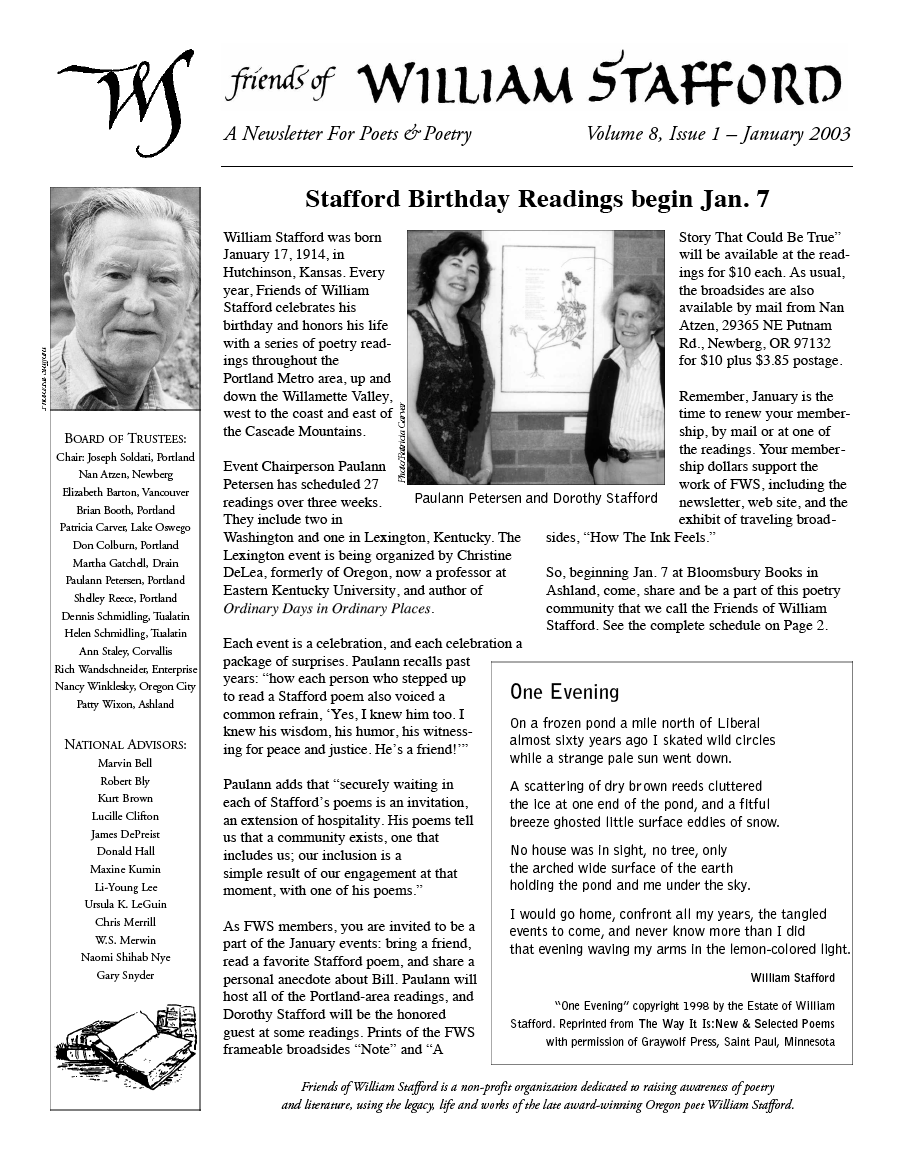 WS
friends of WILLIAM STAFFORD
A Newsletter For Poets & Poetry
Volume 8, Issue 1 – January 2003
BOARD OF TRUSTEES:
Chair: Joseph Soldati, Portland
Nan Atzen, Newberg
Elizabeth Barton, Vancouver
Brian Booth, Portland
Patricia Carver, Lake Oswego
Don Colburn, Portland
Martha Gatchell, Drain
Paulann Petersen, Portland
Shelley Reece, Portland
Dennis Schmidling, Tualatin
Helen Schmidling, Tualatin
Ann Staley, Corvallis
Rich Wandschneider, Enterprise
Nancy Winklesky, Oregon City
Patty Wixon, Ashland
NATIONAL ADVISORS:
Marvin Bell
Robert Bly
Kurt Brown
Lucille Clifton
James DePreist
Donald Hall
Maxine Kumin
Li-Young Lee
Ursula K. LeGuin
Chris Merrill
W.S. Merwin
Naomi Shihab Nye
Gary Snyder
Stafford Birthday Readings begin Jan. 7
William Stafford was born
January 17, 1914, in
Hutchinson, Kansas. Every
year, Friends of William
Stafford celebrates his
birthday and honors his life
with a series of poetry read-
ings throughout the
Portland Metro area, up and
down the Willamette Valley,
west to the coast and east of
the Cascade Mountains.
Event Chairperson Paulann
Petersen has scheduled 27
readings over three weeks.
They include two in
Washington and one in Lexington, Kentucky. The
Lexington event is being organized by Christine
DeLea, formerly of Oregon, now a professor at
Eastern Kentucky University, and author of
Ordinary Days in Ordinary Places.
Each event is a celebration, and each celebration a
package of surprises. Paulann recalls past
years: “how each person who stepped up
to read a Stafford poem also voiced a
common refrain, ‘Yes, I knew him too. I
knew his wisdom, his humor, his witness-
ing for peace and justice. He’s a friend!’”
Paulann adds that “securely waiting in
each of Stafford’s poems is an invitation,
an extension of hospitality. His poems tell
us that a community exists, one that
includes us; our inclusion is a
simple result of our engagement at that
moment, with one of his poems.”
As FWS members, you are invited to be a
part of the January events: bring a friend,
read a favorite Stafford poem, and share a
personal anecdote about Bill. Paulann will
host all of the Portland-area readings, and
Dorothy Stafford will be the honored
guest at some readings. Prints of the FWS
frameable broadsides “Note” and “A
Photo/Patricia Carver
Paulann Petersen and Dorothy Stafford
Story That Could Be True”
will be available at the read-
ings for $10 each. As usual,
the broadsides are also
available by mail from Nan
Atzen, 29365 NE Putnam
Rd., Newberg, OR 97132
for $10 plus $3.85 postage.
Remember, January is the
time to renew your member-
ship, by mail or at one of
the readings. Your member-
ship dollars support the
work of FWS, including the
newsletter, web site, and the
exhibit of traveling broad-
sides, “How The Ink Feels.”
So, beginning Jan. 7 at Bloomsbury Books in
Ashland, come, share and be a part of this poetry
community that we call the Friends of William
Stafford. See the complete schedule on Page 2.
One Evening
On a frozen pond a mile north of Liberal
almost sixty years ago I skated wild circles
while a strange pale sun went down.
A scattering of dry brown reeds cluttered
the ice at one end of the pond, and a fitful
breeze ghosted little surface eddies of snow.
No house was in sight, no tree, only
the arched wide surface of the earth
holding the pond and me under the sky.
I would go home, confront all my years, the tangled
events to come, and never know more than I did
that evening waving my arms in the lemon-colored light.
William Stafford
“One Evening” copyright 1998 by the Estate of William
Stafford. Reprinted from The Way It Is:New & Selected Poems
with permission of Graywolf Press, Saint Paul, Minnesota
Friends of William Stafford is a non-profit organization dedicated to raising awareness of poetry
and literature, using the legacy, life and works of the late award-winning Oregon poet William Stafford.